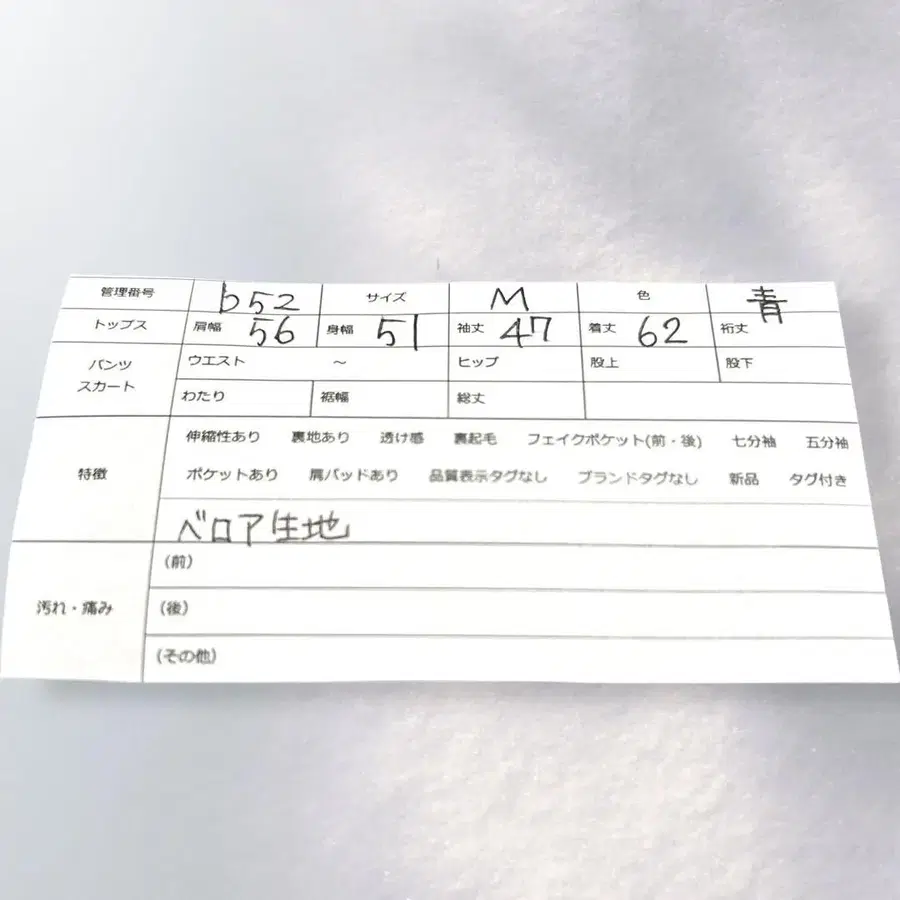 管理番号 b52 サイズ M 色 青
トップス 肩幅 56 身幅 51 袖丈 47 着丈 62 裄丈
パンツ スカート ウエスト ～ ヒップ 股上 股下
わたり 裾幅 総丈
特徴 伸縮性あり 裏地あり 透け感 裏起毛 フェイクポケット(前・後) 七分袖 五分袖
ポケットあり 肩パッドあり 品質表示タグなし ブランドタグなし 新品 タグ付き
ベロア生地
汚れ・痛み (前)
(後)
(その他)